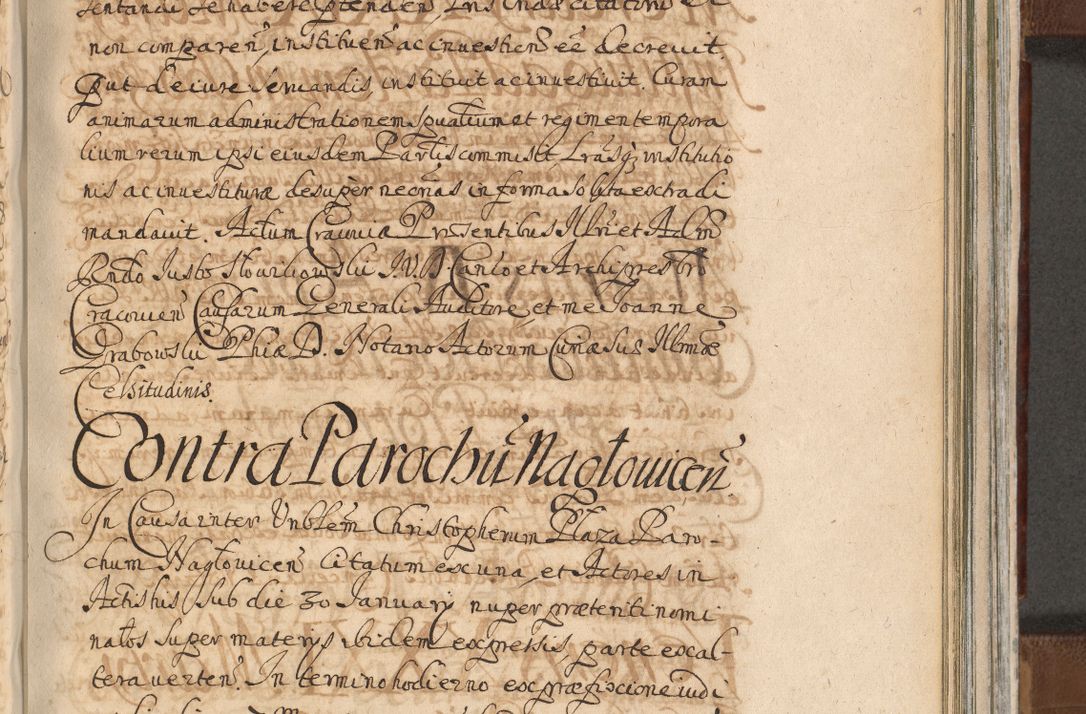 non comparen̄, instituen̄ ac investien̄ eē decrevit,
Put de iure servandis, instituit ac investivit. Curam
animarum administrationem spūalium et regimen tempora
lium rerum ipsi eiusdem Parlis commisit Lrasq; institutio
nis ac investituræ desuper necrias in forma solita extradi
mandavit. Actum Cracoviæ Præsentibus Illri et Adm
Rndo Iusto Słowikowski I.V.D. Canco et Archipresbro
Cracovien̄ Causarum Generali Auditore, et me Joanne
Grabowski Phiæ D. Notario Actorum Curiæ suæ Illmæ
Celsitudinis.
Contra Parochū Nagłovicen̄.
In Causa inter Vnblem Christopherum Płaza Paro-
chum Nagłovicen̄ Citatum ex una, et Actores in
Actis his sub die 30 January nuper præteriti nomi
natos super materys ibidem expressis parte ex al-
tera verten̄. In termino hodierno ex præfixione iudi